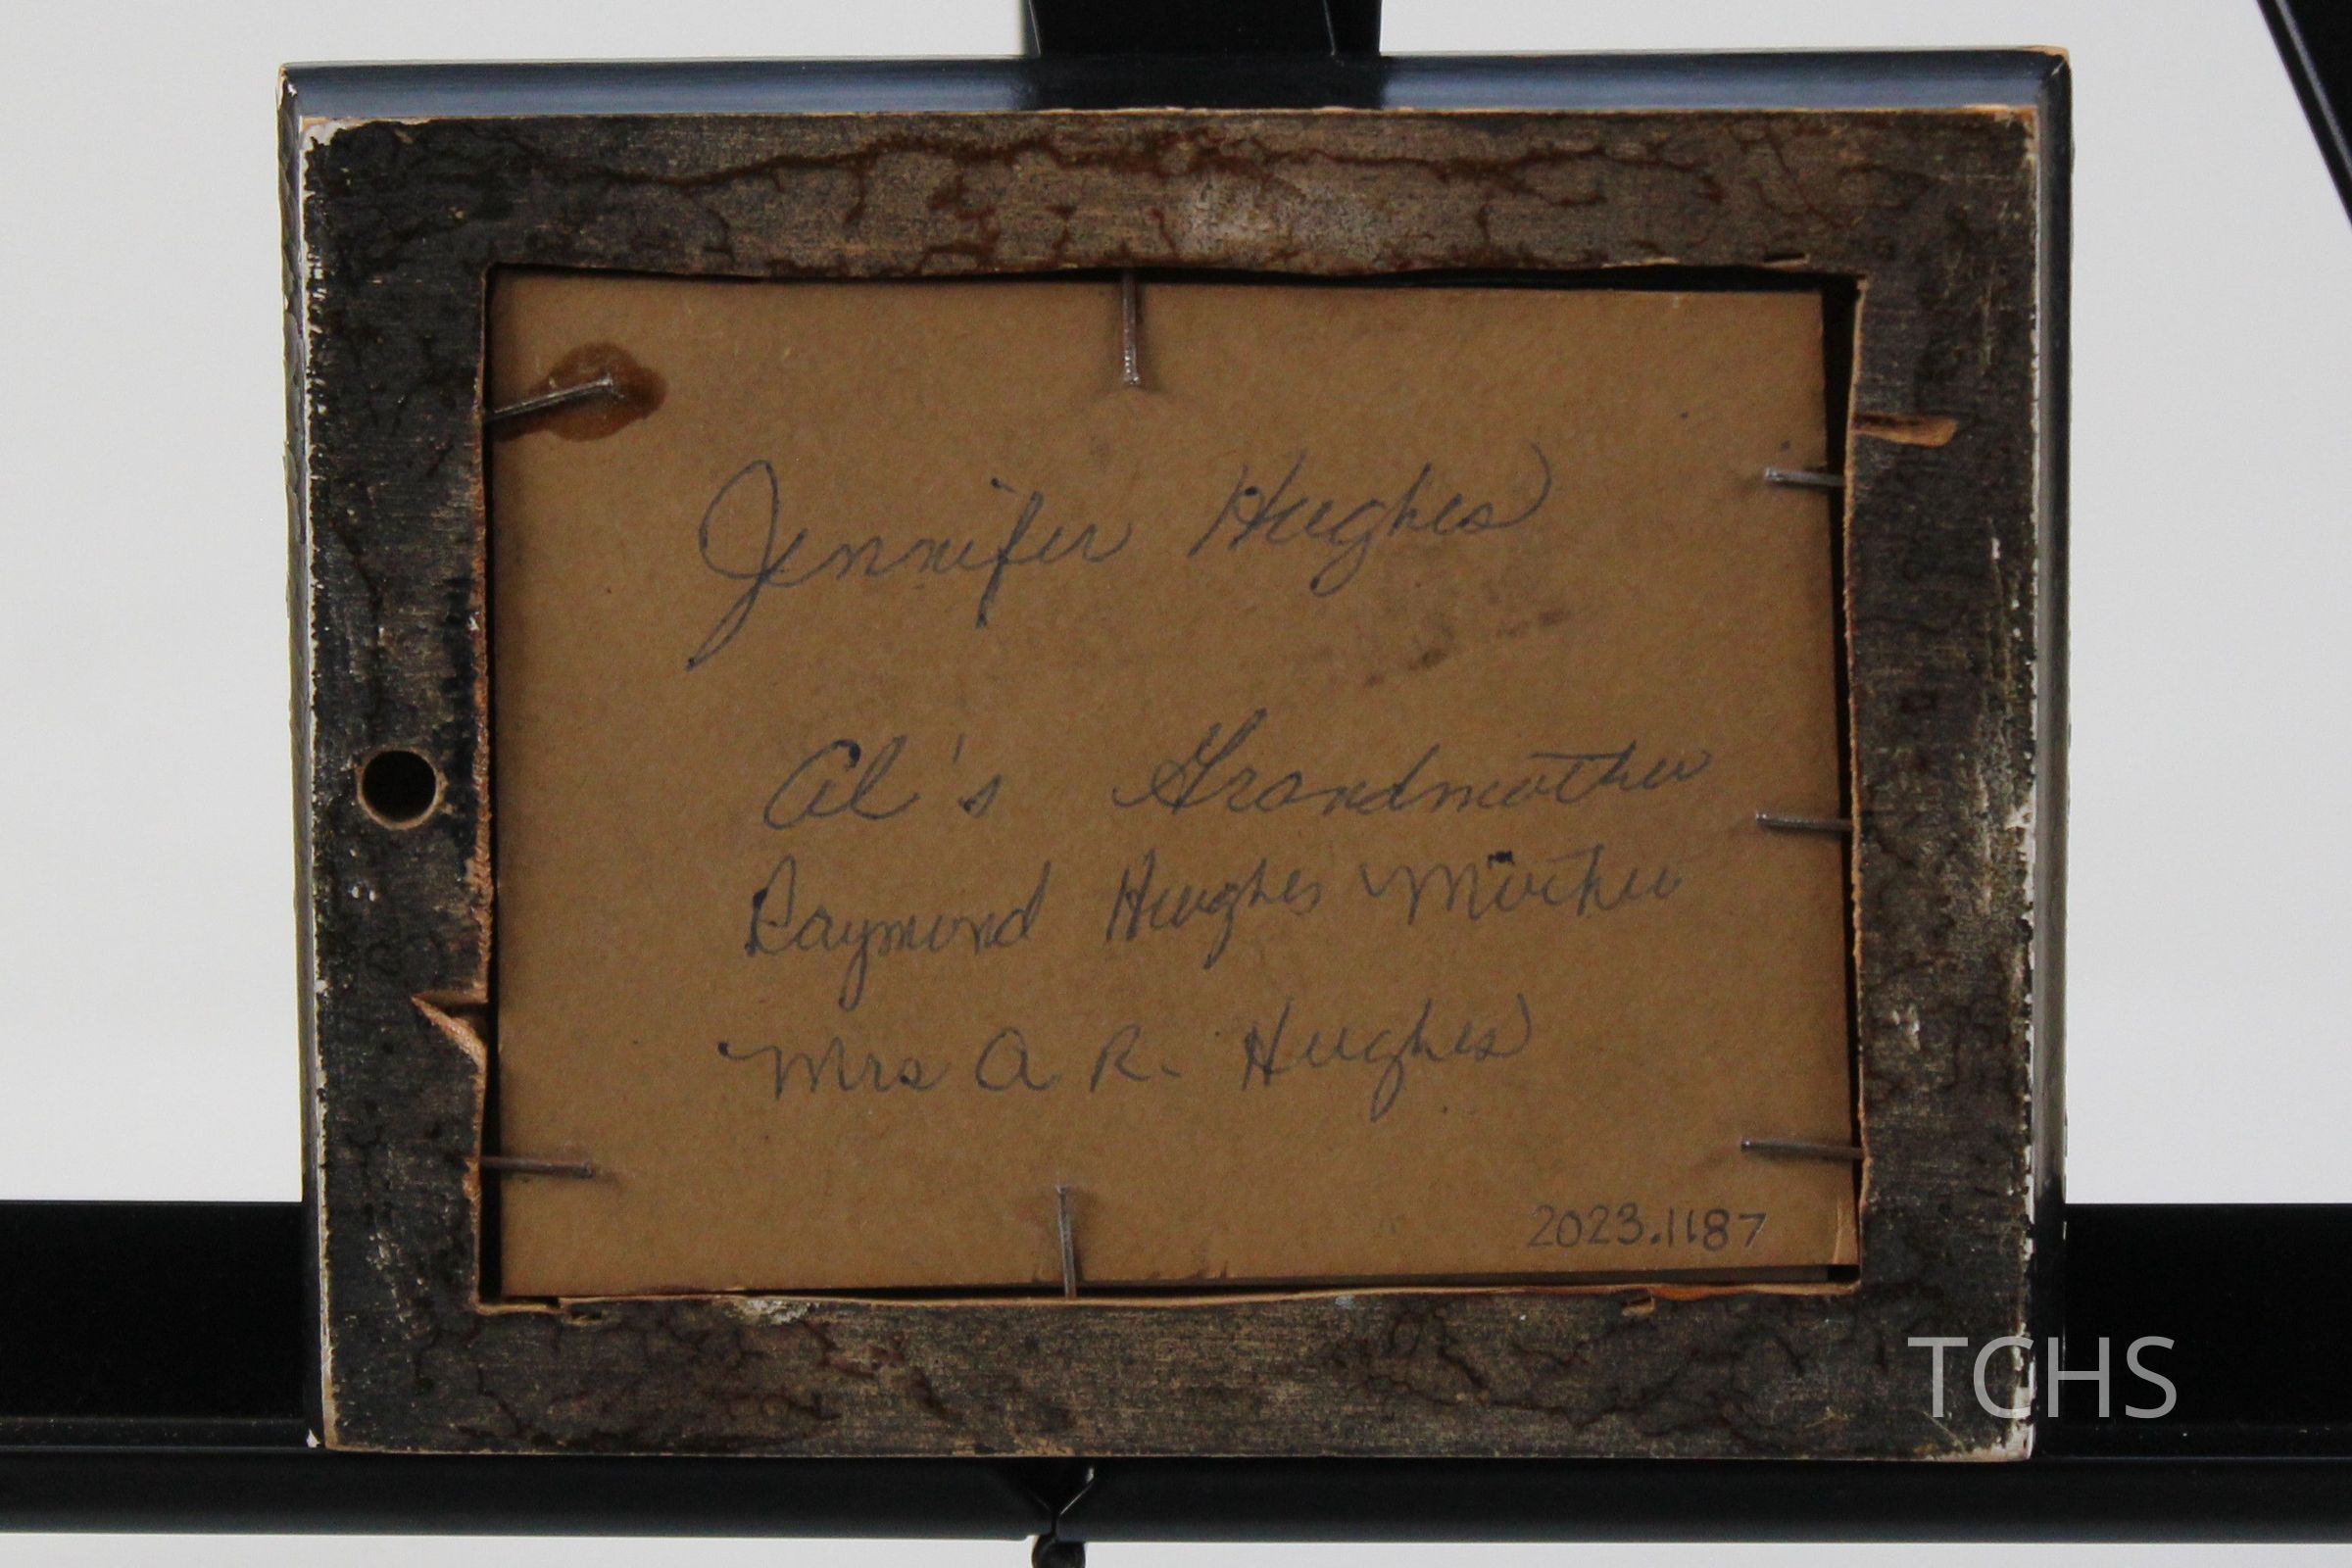 Jennifer Hughes
Al's Grandmother
Raymond Hughes Mother
Mrs A R. Hughes
2023.1187
TCHS